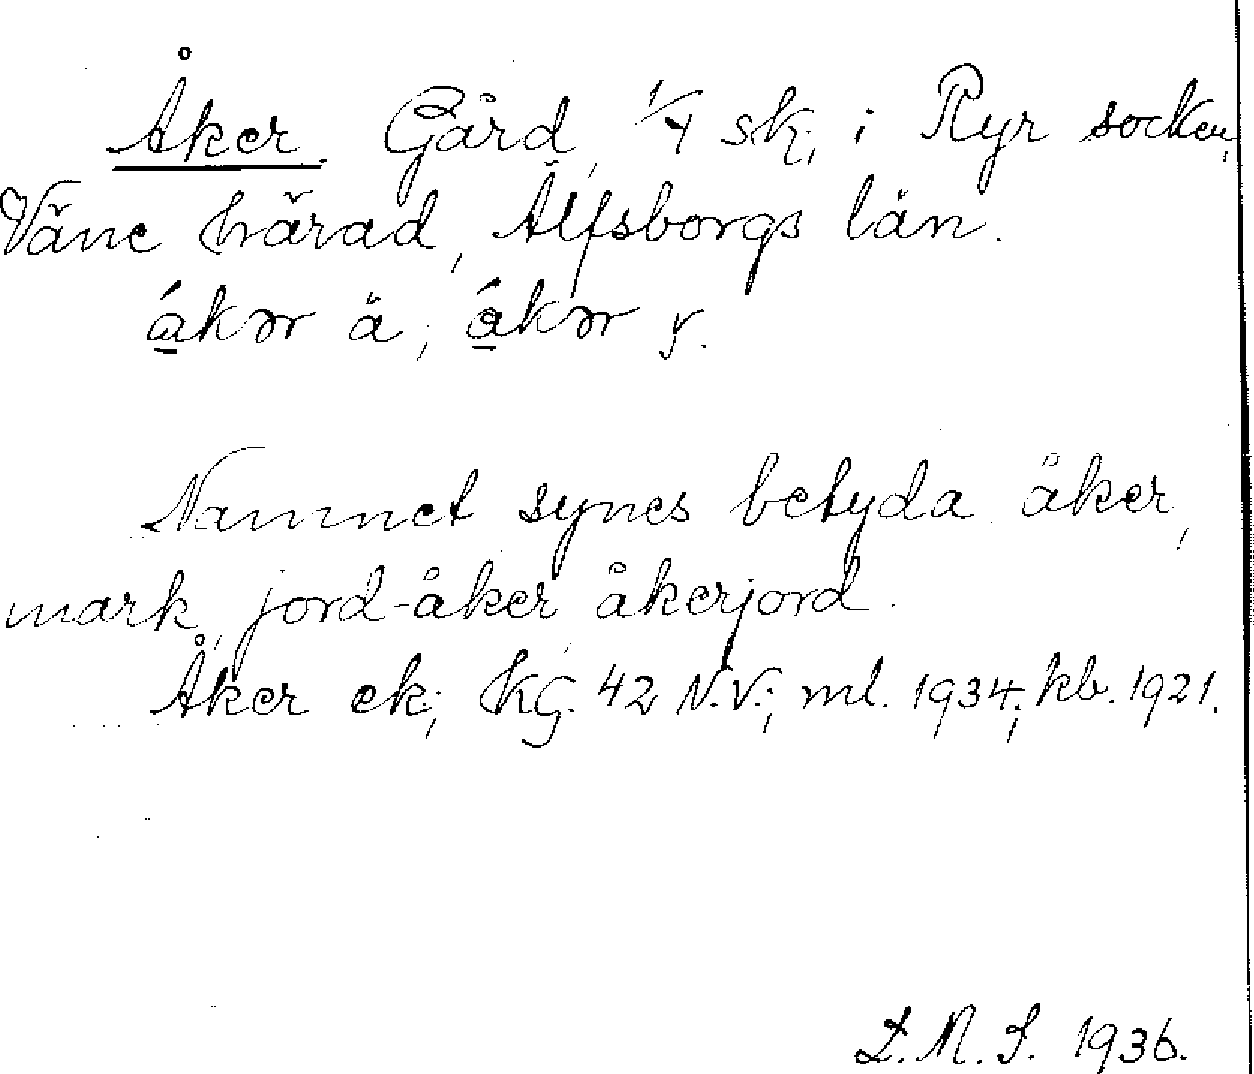 Åker. Gård, 1/4 sk; i Ryr socken,
Väne härad, Älfsborgs län.
ákər ä; ákər y.
Namnet synes betyda åker,
mark, jord-åker åkerjord.
Åker ek; KG. 42 N.V.; ml. 1934; kb. 1921.
L.N.S. 1936.